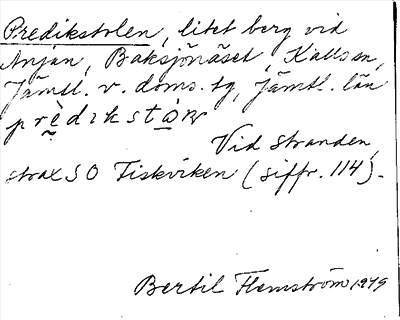 Predikstolen, litet berg vid
Anjan, Baksjönäset, Kallsn,
Jämtl. v. doms. tg, Jämtl. län
Vid stranden,
strax SO Fiskviken (siffr. 114).
Bertil Flemström 1979